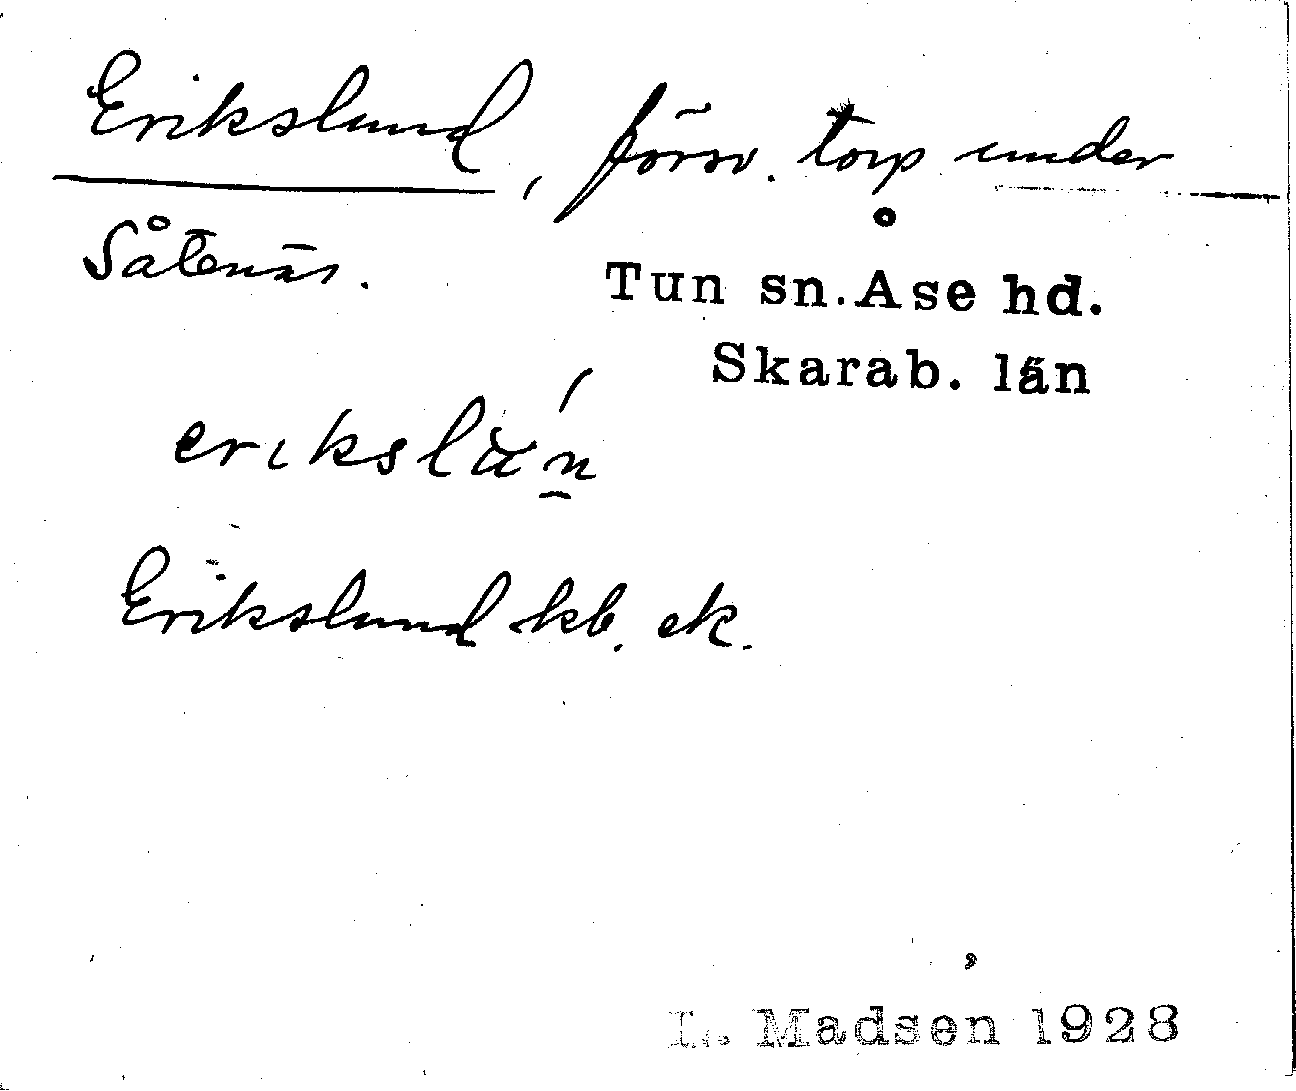 Erikslund, försv. torp under
Såtenäs.
Tun sn. Åse hd.
Skarab. län
erikslä́n̲
Erikslund kb. ek.
L. Madsen 1928